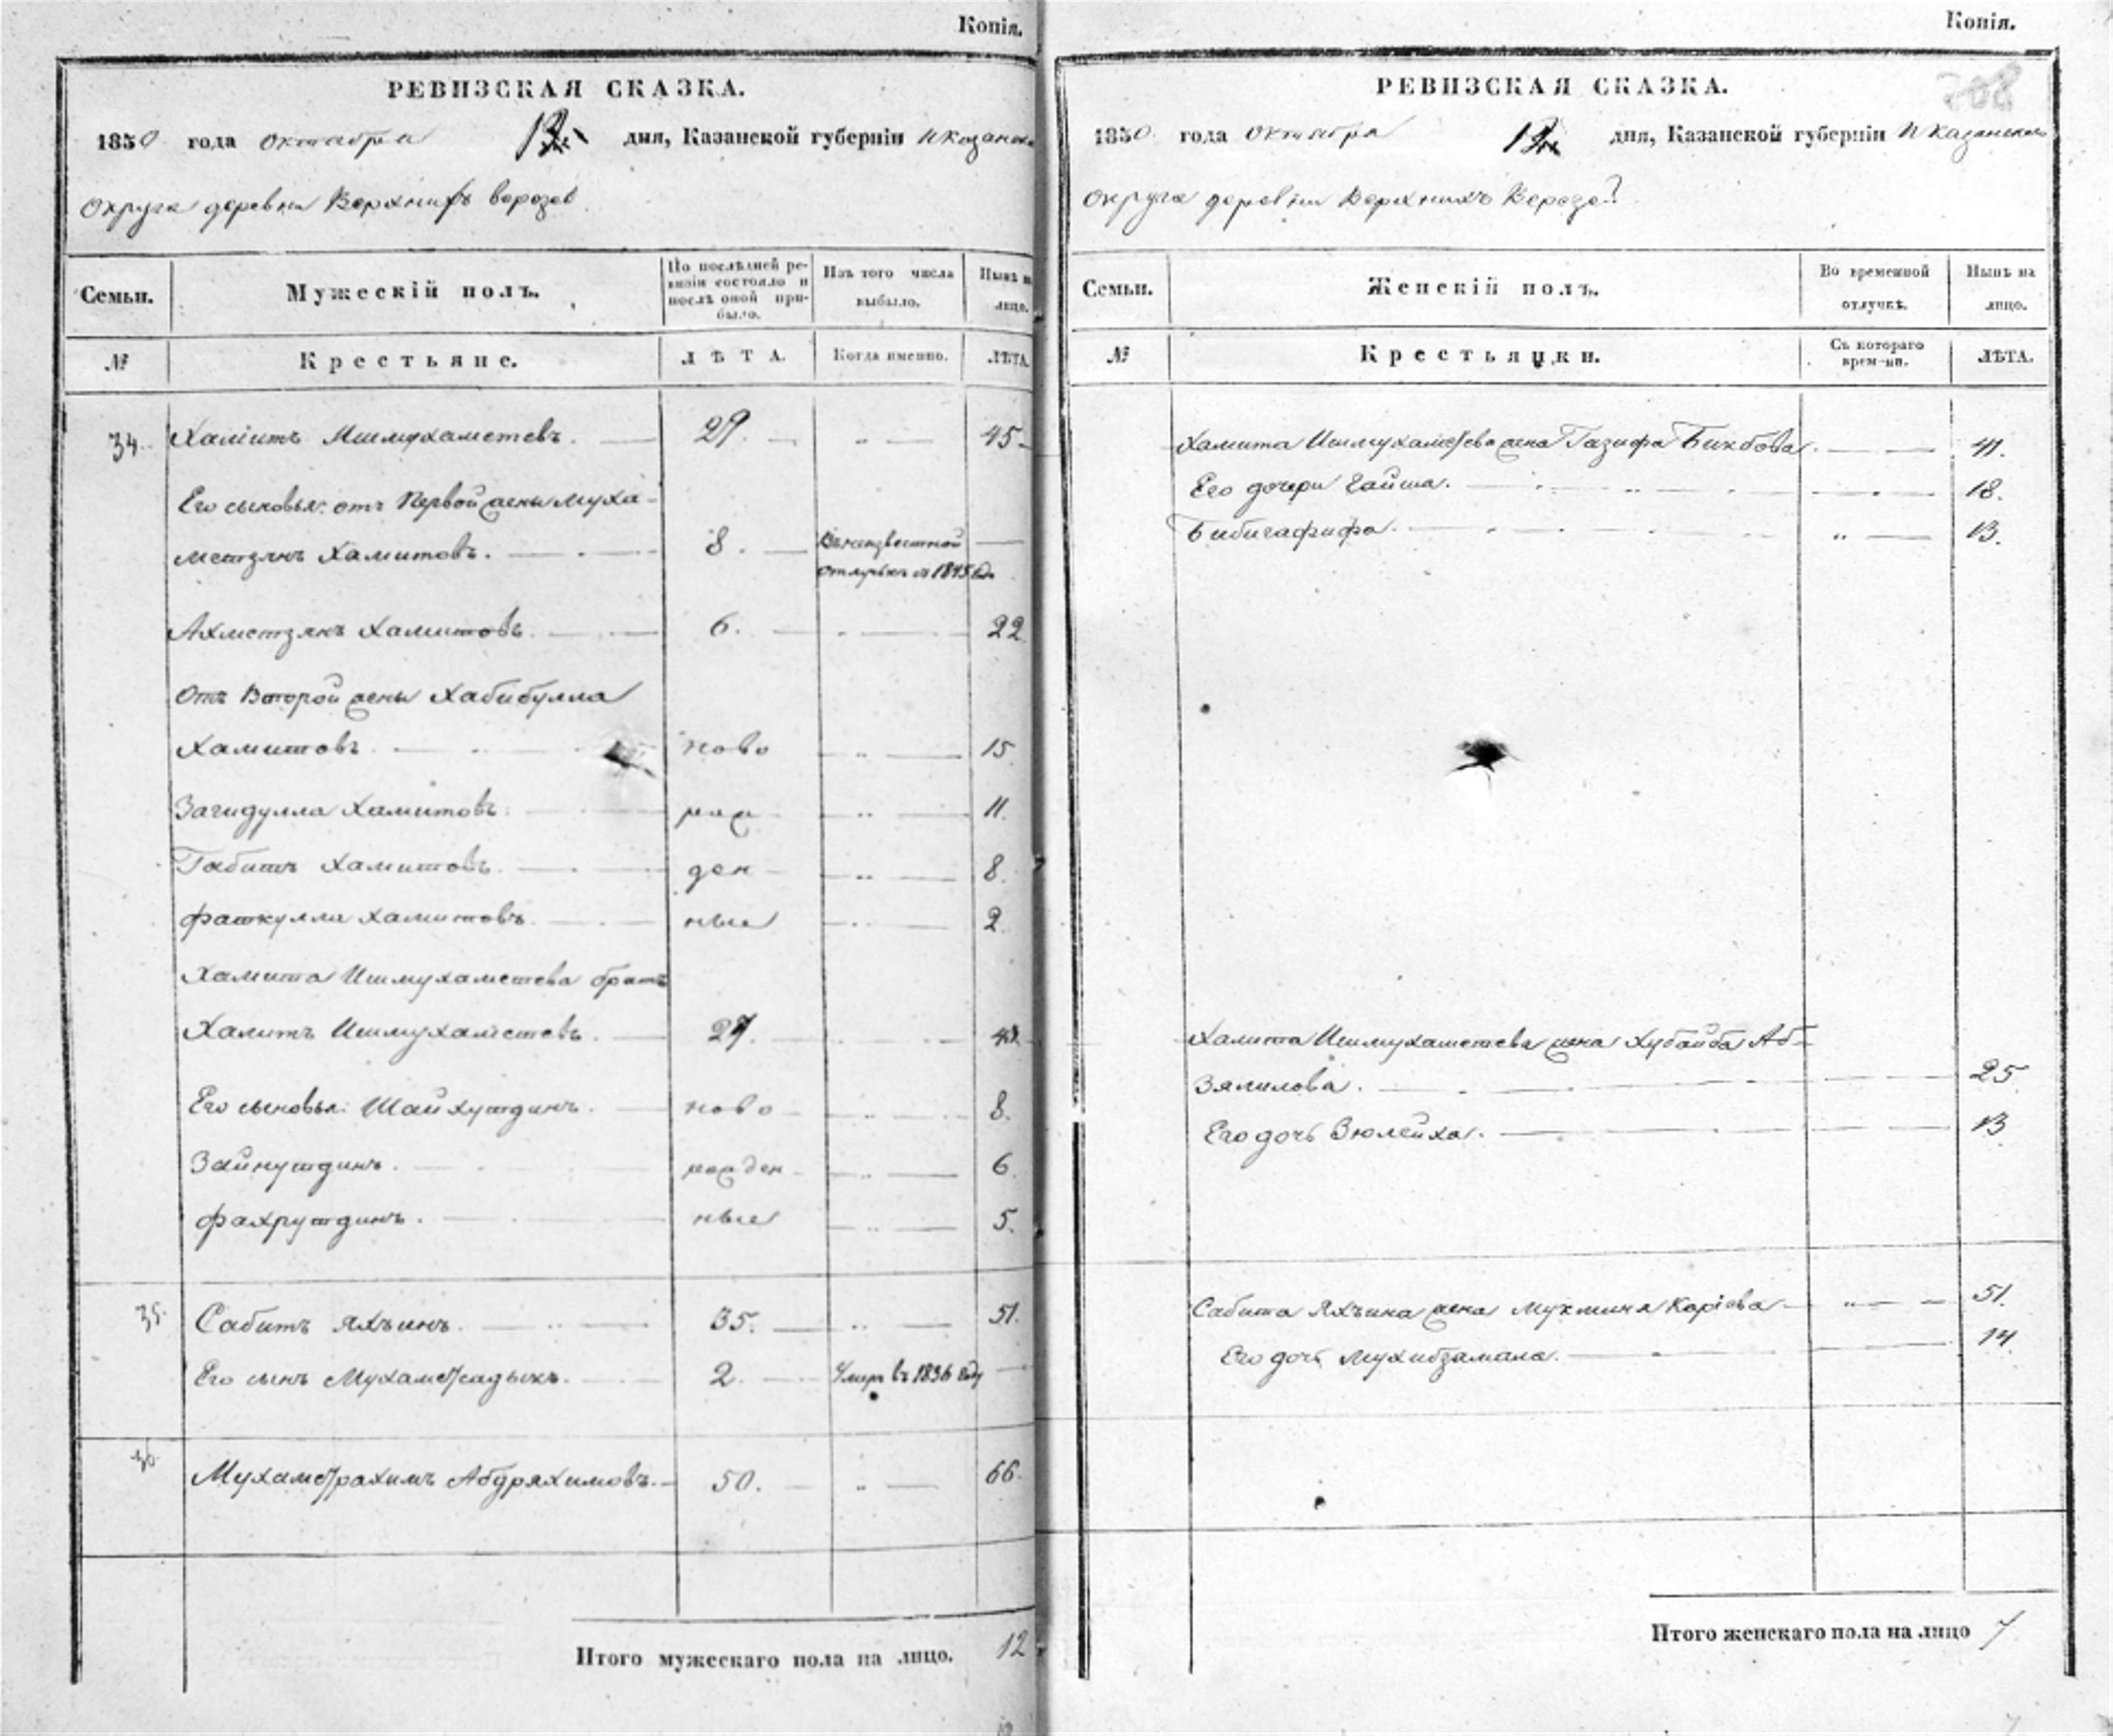 Копія.
РЕВИЗСКАЯ СКАЗКА.
1850 года Октября 12 дня, Казанской губерніи и Казанскаго
Округа деревни Верхнихъ Верезев
Семьи.
Мужескій полъ.
По послѣдней ре-
визіи состояло и
послѣ оной при-
было.
Изъ того числа
выбыло.
Нынѣ на
лицо.
№
Крестьяне.
ЛѢТА.
Когда именно.
ЛѢТА.
34. Хамитъ Ишмухаметевъ. 29. 45
Его сыновья: отъ Первой жены Муха-
метзянъ Хамитовъ. 8. Въ неизвестной
отлучкѣ съ 1845 года
Ахметзянъ Хамитовъ. 6. 22
Отъ Второй жены Хабибулла
Хамитовъ ново 15
Загидулла Хамитовъ рож 11.
Габитъ Хамитовъ ден 8.
Фаткулла Хамитовъ ные 2
Хамита Ишмухаметева братъ
Халитъ Ишмухаметевъ.
Его сыновья: Шайхутдинъ. ново 8.
Зайнутдинъ. рожден 6.
Фахрутдинъ. ные 5.
35. Сабитъ Яхъинъ. 35. 51.
Его сынъ Мухаметсадыкъ. 2. Умеръ въ 1836 году
36 Мухаметрахимъ Абдряхимовъ. 50. 66.
Итого мужескаго пола на лицо. 12
Копія.
РЕВИЗСКАЯ СКАЗКА.
1850 года Октября 12 дня, Казанской губерніи и Казанскаго
Округа деревни Верхнихъ Верезе
Семьи.
Женскій полъ.
Во временной
отлучкѣ.
Нынѣ на
лицо.
№
Крестьянки.
Съ котораго
времени.
ЛѢТА.
Хамита Ишмухаметева жена Газифа Бикбова 41.
Его дочери Гайша. 18.
Бибигафифа. 13.
Халита Ишмухаметева жена Хубайба Аб-
зялилова. 25
Его дочь Зюлейха. 13
Сабита Яхъина жена Мукмина Каріева 51.
Его дочь Мухибзамала. 14
Итого женскаго пола на лицо 7